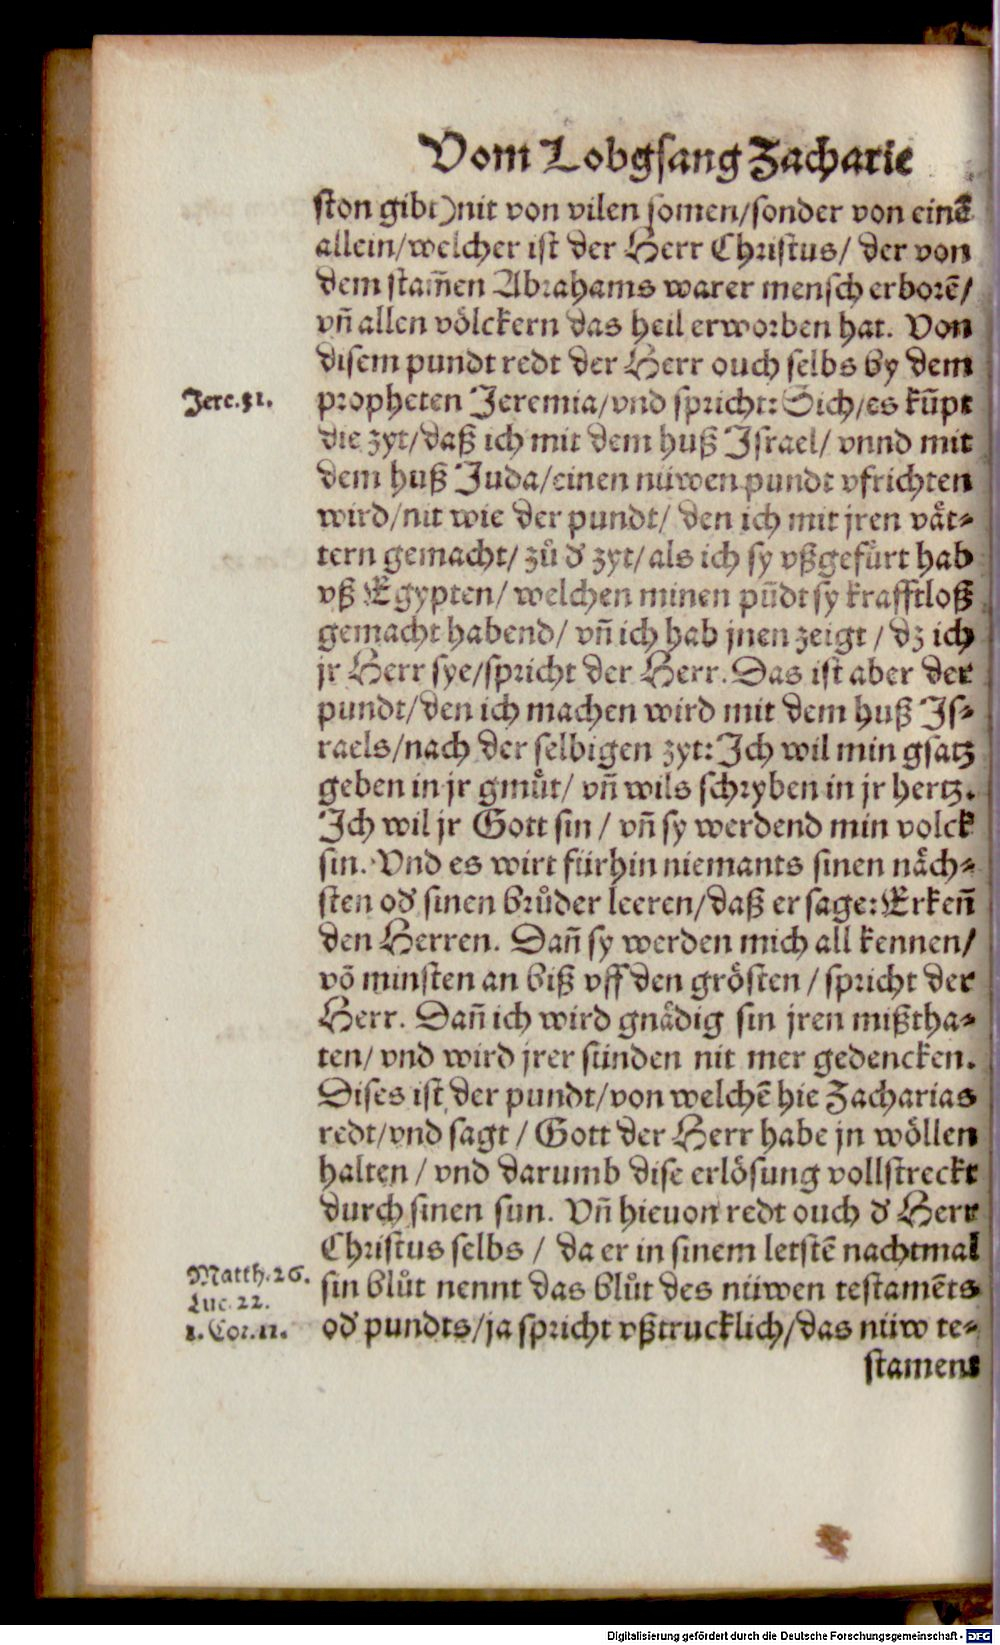 Vom Lobgsang Zacharie
ston gibt) nit von vilen somen/sonder von einẽ
allein/welcher ist der Herr Christus/ der von
dem stam̃en Abrahams warer mensch erborẽ/
vñ allen völckern das heil erworben hat. Von
disem pundt redt der Herr ouch selbs by dem
Jere.31.
propheten Jeremia/vnd spricht: Sich/es kũpt
die zyt/daß ich mit dem huß Israel/ vnnd mit
dem huß Juda/einen nüwen pundt vfrichten
wird/nit wie der pundt/ den ich mit jren vät-
tern gemacht/ zů d' zyt/ als ich sy vßgefürt hab
vß Egypten/ welchen minen pũdt sy krafftloß
gemacht habend/ vñ ich hab jnen zeigt / dz ich
jr Herr sye/spricht der Herr. Das ist aber der
pundt/den ich machen wird mit dem huß Is-
raels/nach der selbigen zyt: Ich wil min gsatz
geben in jr gmůt/ vñ wils schryben in jr hertz.
Ich wil jr Gott sin / vñ sy werdend min volck
sin. Vnd es wirt fürhin niemants sinen näch-
sten od' sinen brůder leeren/daß er sage: Erkeñ
den Herren. Dañ sy werden mich all kennen/
võ minsten an biß vff den grösten / spricht der
Herr. Dañ ich wird gnädig sin jren mißtha-
ten/ vnd wird jrer sünden nit mer gedencken.
Dises ist der pundt/von welchẽ hie Zacharias
redt/vnd sagt / Gott der Herr habe jn wöllen
halten / vnd darumb dise erlösung vollstreckt
durch sinen sun. Vñ hieuon redt ouch d' Herr
Christus selbs / da er in sinem letstẽ nachtmal
Matth.26.
Luc.22.
1.Cor.11.
sin blůt nennt das blůt des nüwen testamẽts
od' pundts/ja spricht vßtrucklich/das nüw te-
stament
Digitalisierung gefördert durch die Deutsche Forschungsgemeinschaft - DFG